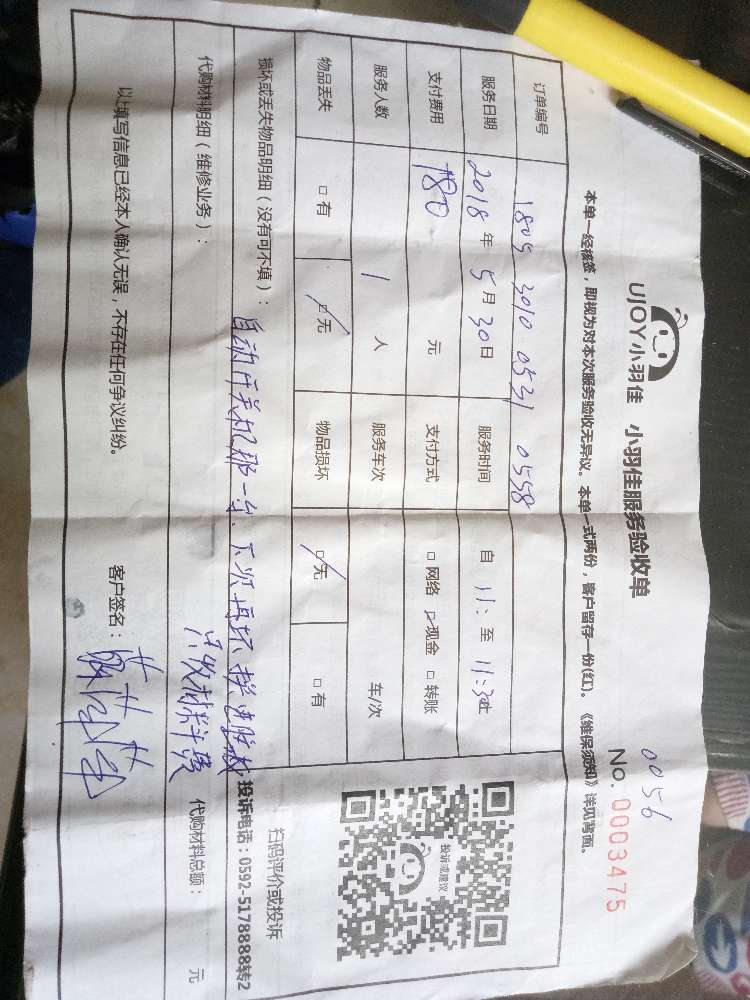 0056
UJOY小羽佳 小羽佳服务验收单 No. 0003475
本单一经核签，即视为对本次服务验收无异议。本单一式两份，客户留存一份(红)。《维保须知》详见背面。
订单编号 1805 3010 0531 0558
服务日期 2018年5月30日 服务时间 自 11: 至 11:30止
支付费用 180 元 支付方式 □网络 ☑现金 □转账
服务人数 1 人 服务车次 车/次
物品丢失 □有 ☑无 物品损坏 ☑无 □有
投诉或建议
扫码评价或投诉
投诉电话：0592-5178888转2
损坏或丢失物品明细（没有可不填）：自动开关机那一台，下次再坏换电脑板
只收材料费
代购材料明细（维修业务）： 代购材料总额： 元
以上填写信息已经本人确认无误，不存在任何争议纠纷。 客户签名：